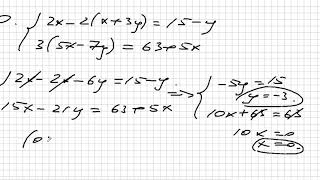 { 2x - 2(x + 3y) = 15 - y
3(5x - 7y) = 63 + 5x
{ 2x - 2x - 6y = 15 - y
15x - 21y = 63 + 5x
=> { -5y = 15
y = -3
10x + 63 = 63
10x = 0
x = 0.
(0;